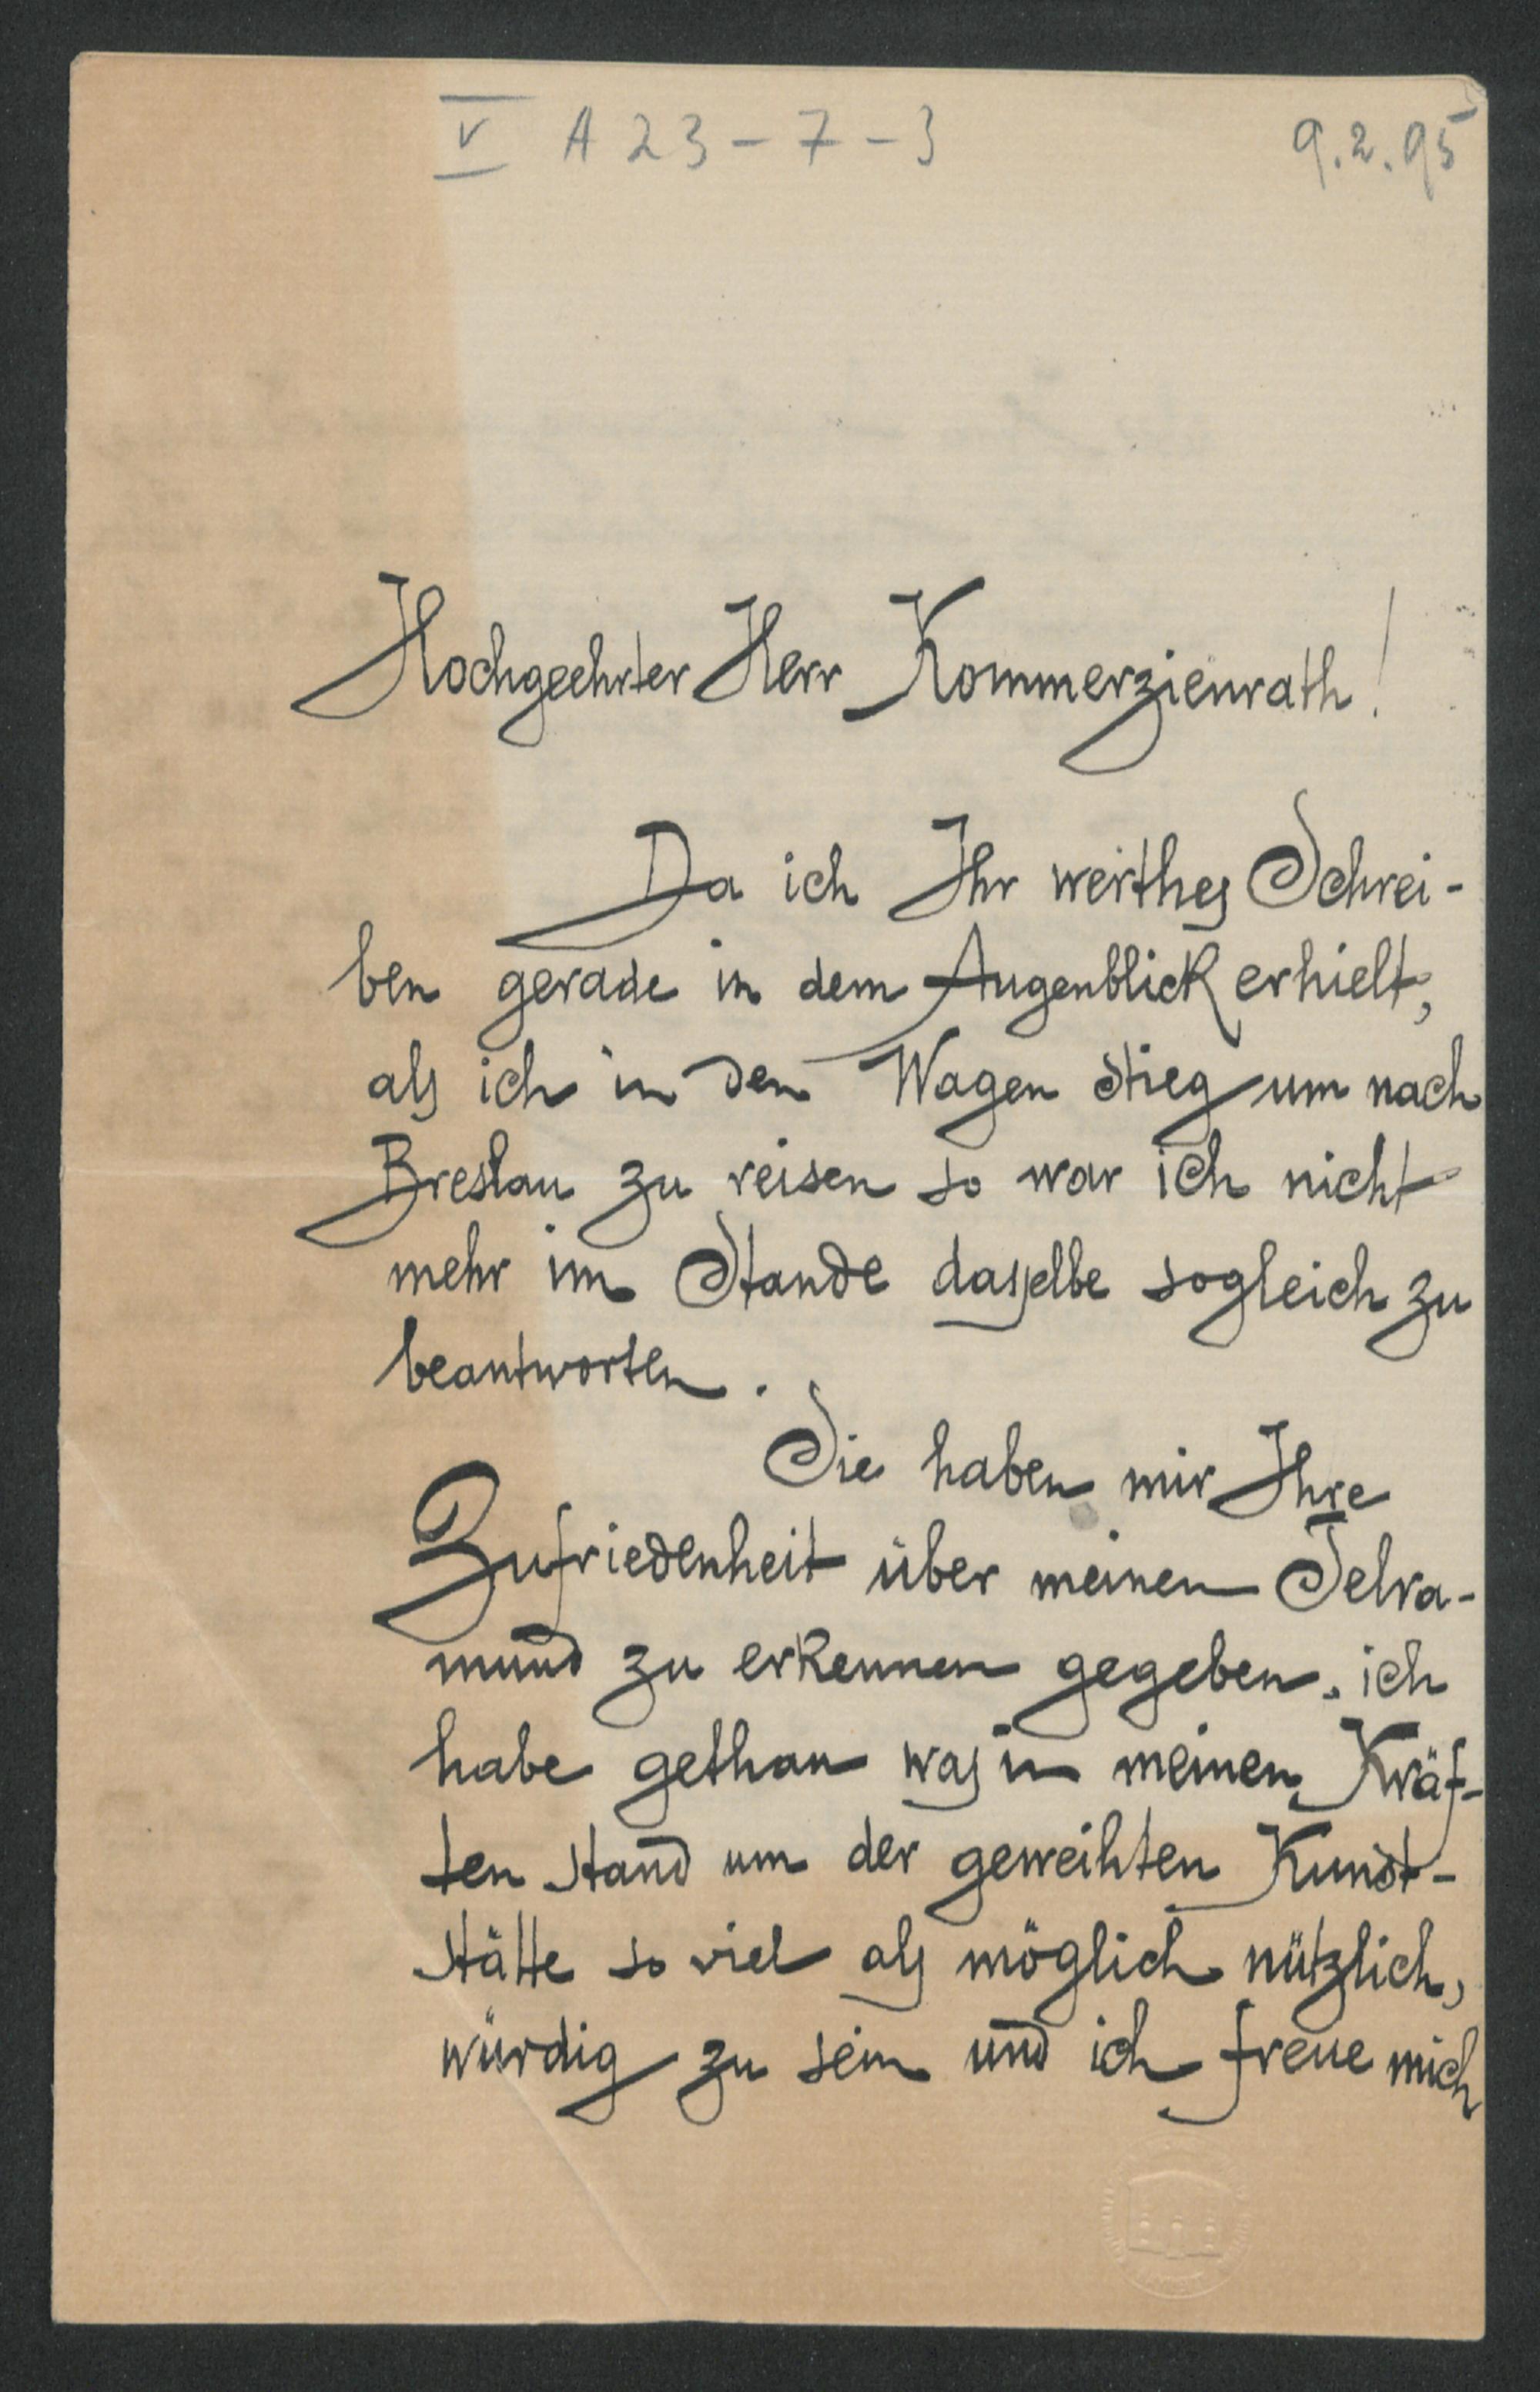 V A 23-7-3 9.2.95
Hochgeehrter Herr Kommerzienrath!
Da ich Ihr werthes Schrei-
ben gerade in dem Augenblick erhielt,
als ich in den Wagen stieg um nach
Breslau zu reisen so war ich nicht
mehr im Stande dasselbe sogleich zu
beantworten.
Sie haben mir Ihre
Zufriedenheit über meinen Telra-
mund zu erkennen gegeben, ich
habe gethan was in meinen Kräf-
ten stand um der geweihten Kunst-
stätte so viel als möglich nützlich,
würdig zu sein und ich freue mich